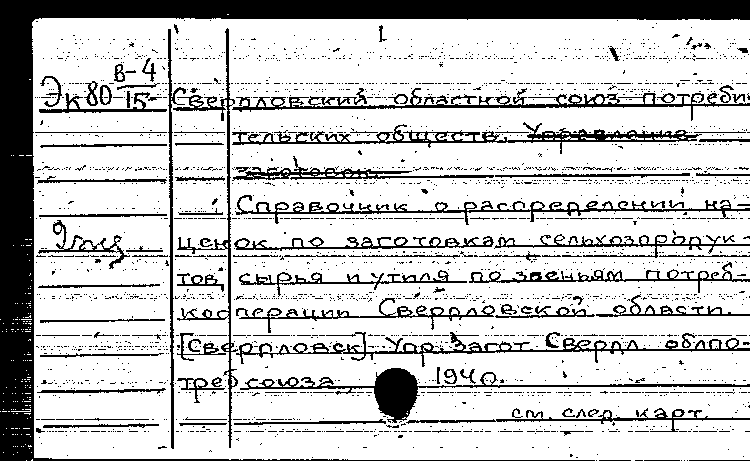 I
Эк80 В-4/15
Свердловский областной союз потреби-
тельских обществ. Управление
заготовок.
Справочник о распределении на-
ценок по заготовкам сельхозпродук-
тов, сырья и утиля по звеньям потреб-
кооперации Свердловской области.
[Свердловск], Упр. загот. Свердл. облпо-
требсоюза, 1940.
см. след. карт.